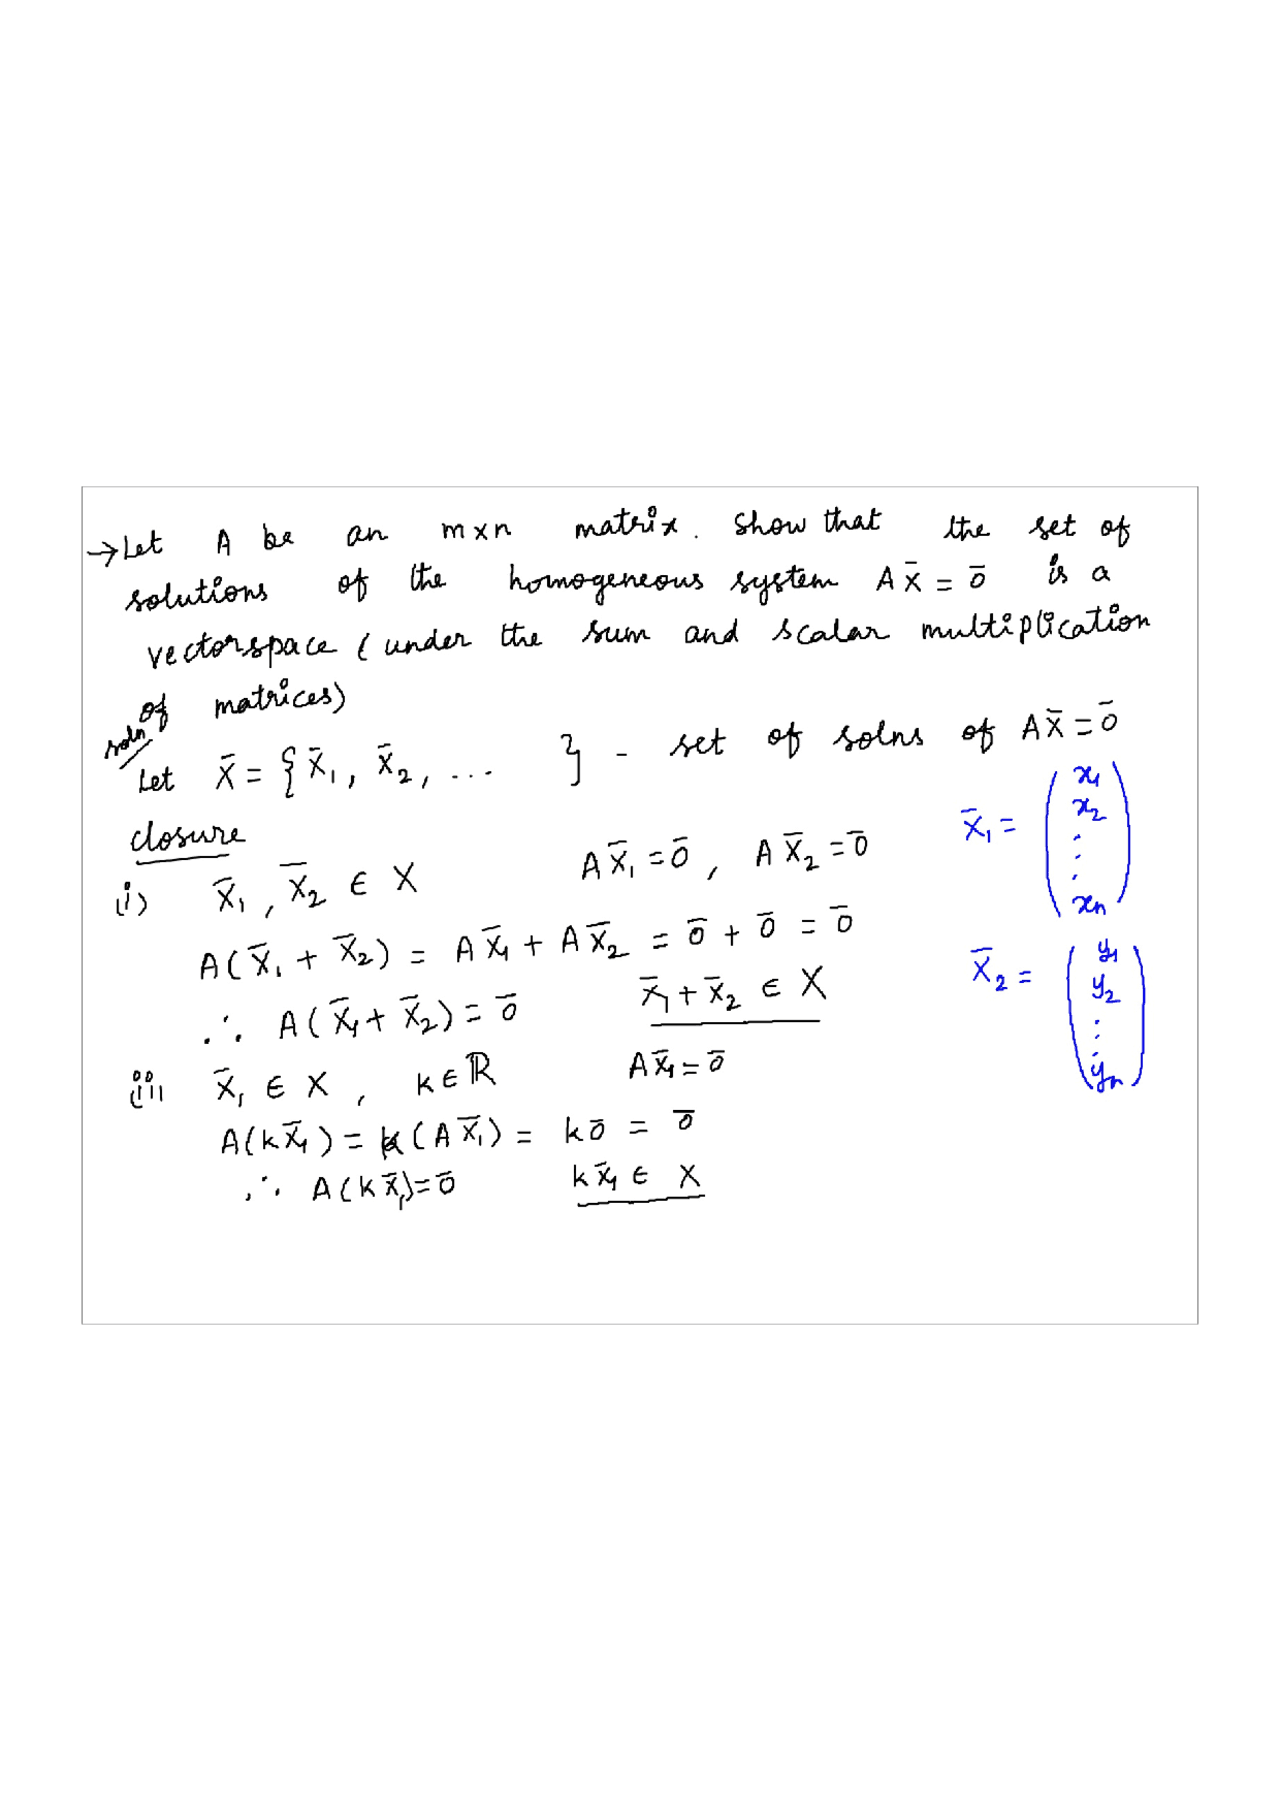 → Let A be an m×n matrix. Show that the set of
solutions of the homogeneous system A X̄ = ō is a
vectorspace ( under the sum and scalar multiplication
of matrices)
soln
Let X̄ = { X̄₁, X̄₂, ... } - set of solns of A X̄ = ō
closure
X̄₁ = ( x₁ x₂ ⋮ xₙ )
(i) X̄₁ , X̄₂ ∈ X A X̄₁ = ō , A X̄₂ = ō
A( X̄₁ + X̄₂ ) = A X̄₁ + A X̄₂ = ō + ō = ō
X̄₂ = ( y₁ y₂ ⋮ yₙ )
∴ A( X̄₁ + X̄₂ ) = ō X̄₁ + X̄₂ ∈ X
(ii) X̄₁ ∈ X , k ∈ ℝ A X̄₁ = ō
A( k X̄₁ ) = k ( A X̄₁ ) = k ō = ō
∴ A( k X̄₁ ) = ō k X̄₁ ∈ X